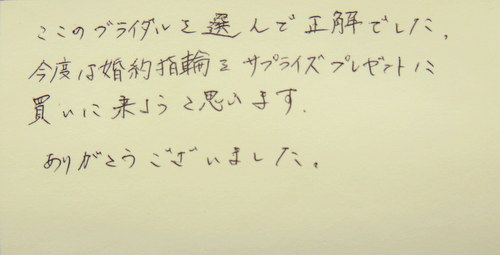 ここのブライダルを選んで正解でした。
今度は婚約指輪をサプライズプレゼントに
買いに来ようと思います.
ありがとうございました。